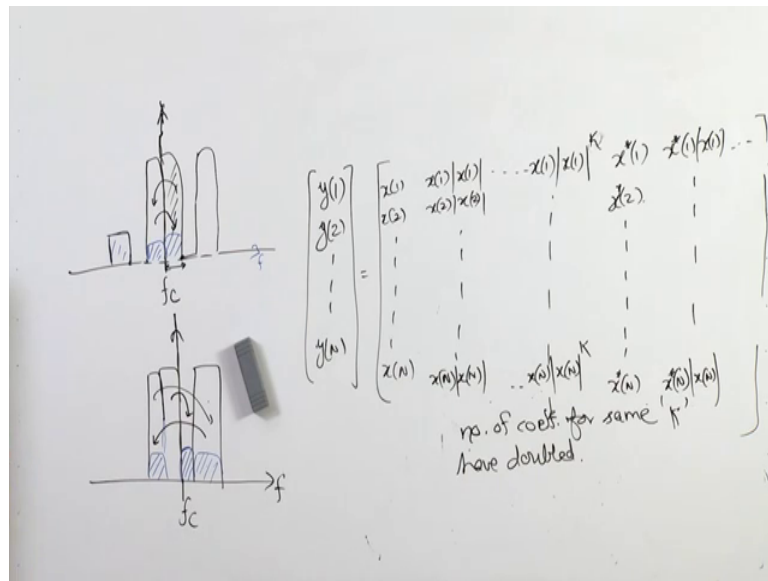 f
fc
f
fc
y(1)
y(2)
y(N)
=
x(1) x(1)|x(1)| .... x(1)|x(1)|^K x*(1) x*(1)|x(1)| ...
x(2) x(2)|x(2)| x*(2)
x(N) x(N)|x(N)| ..x(N)|x(N)|^K x*(N) x*(N)|x(N)|
no. of coeff. for same 'K'
have doubled.